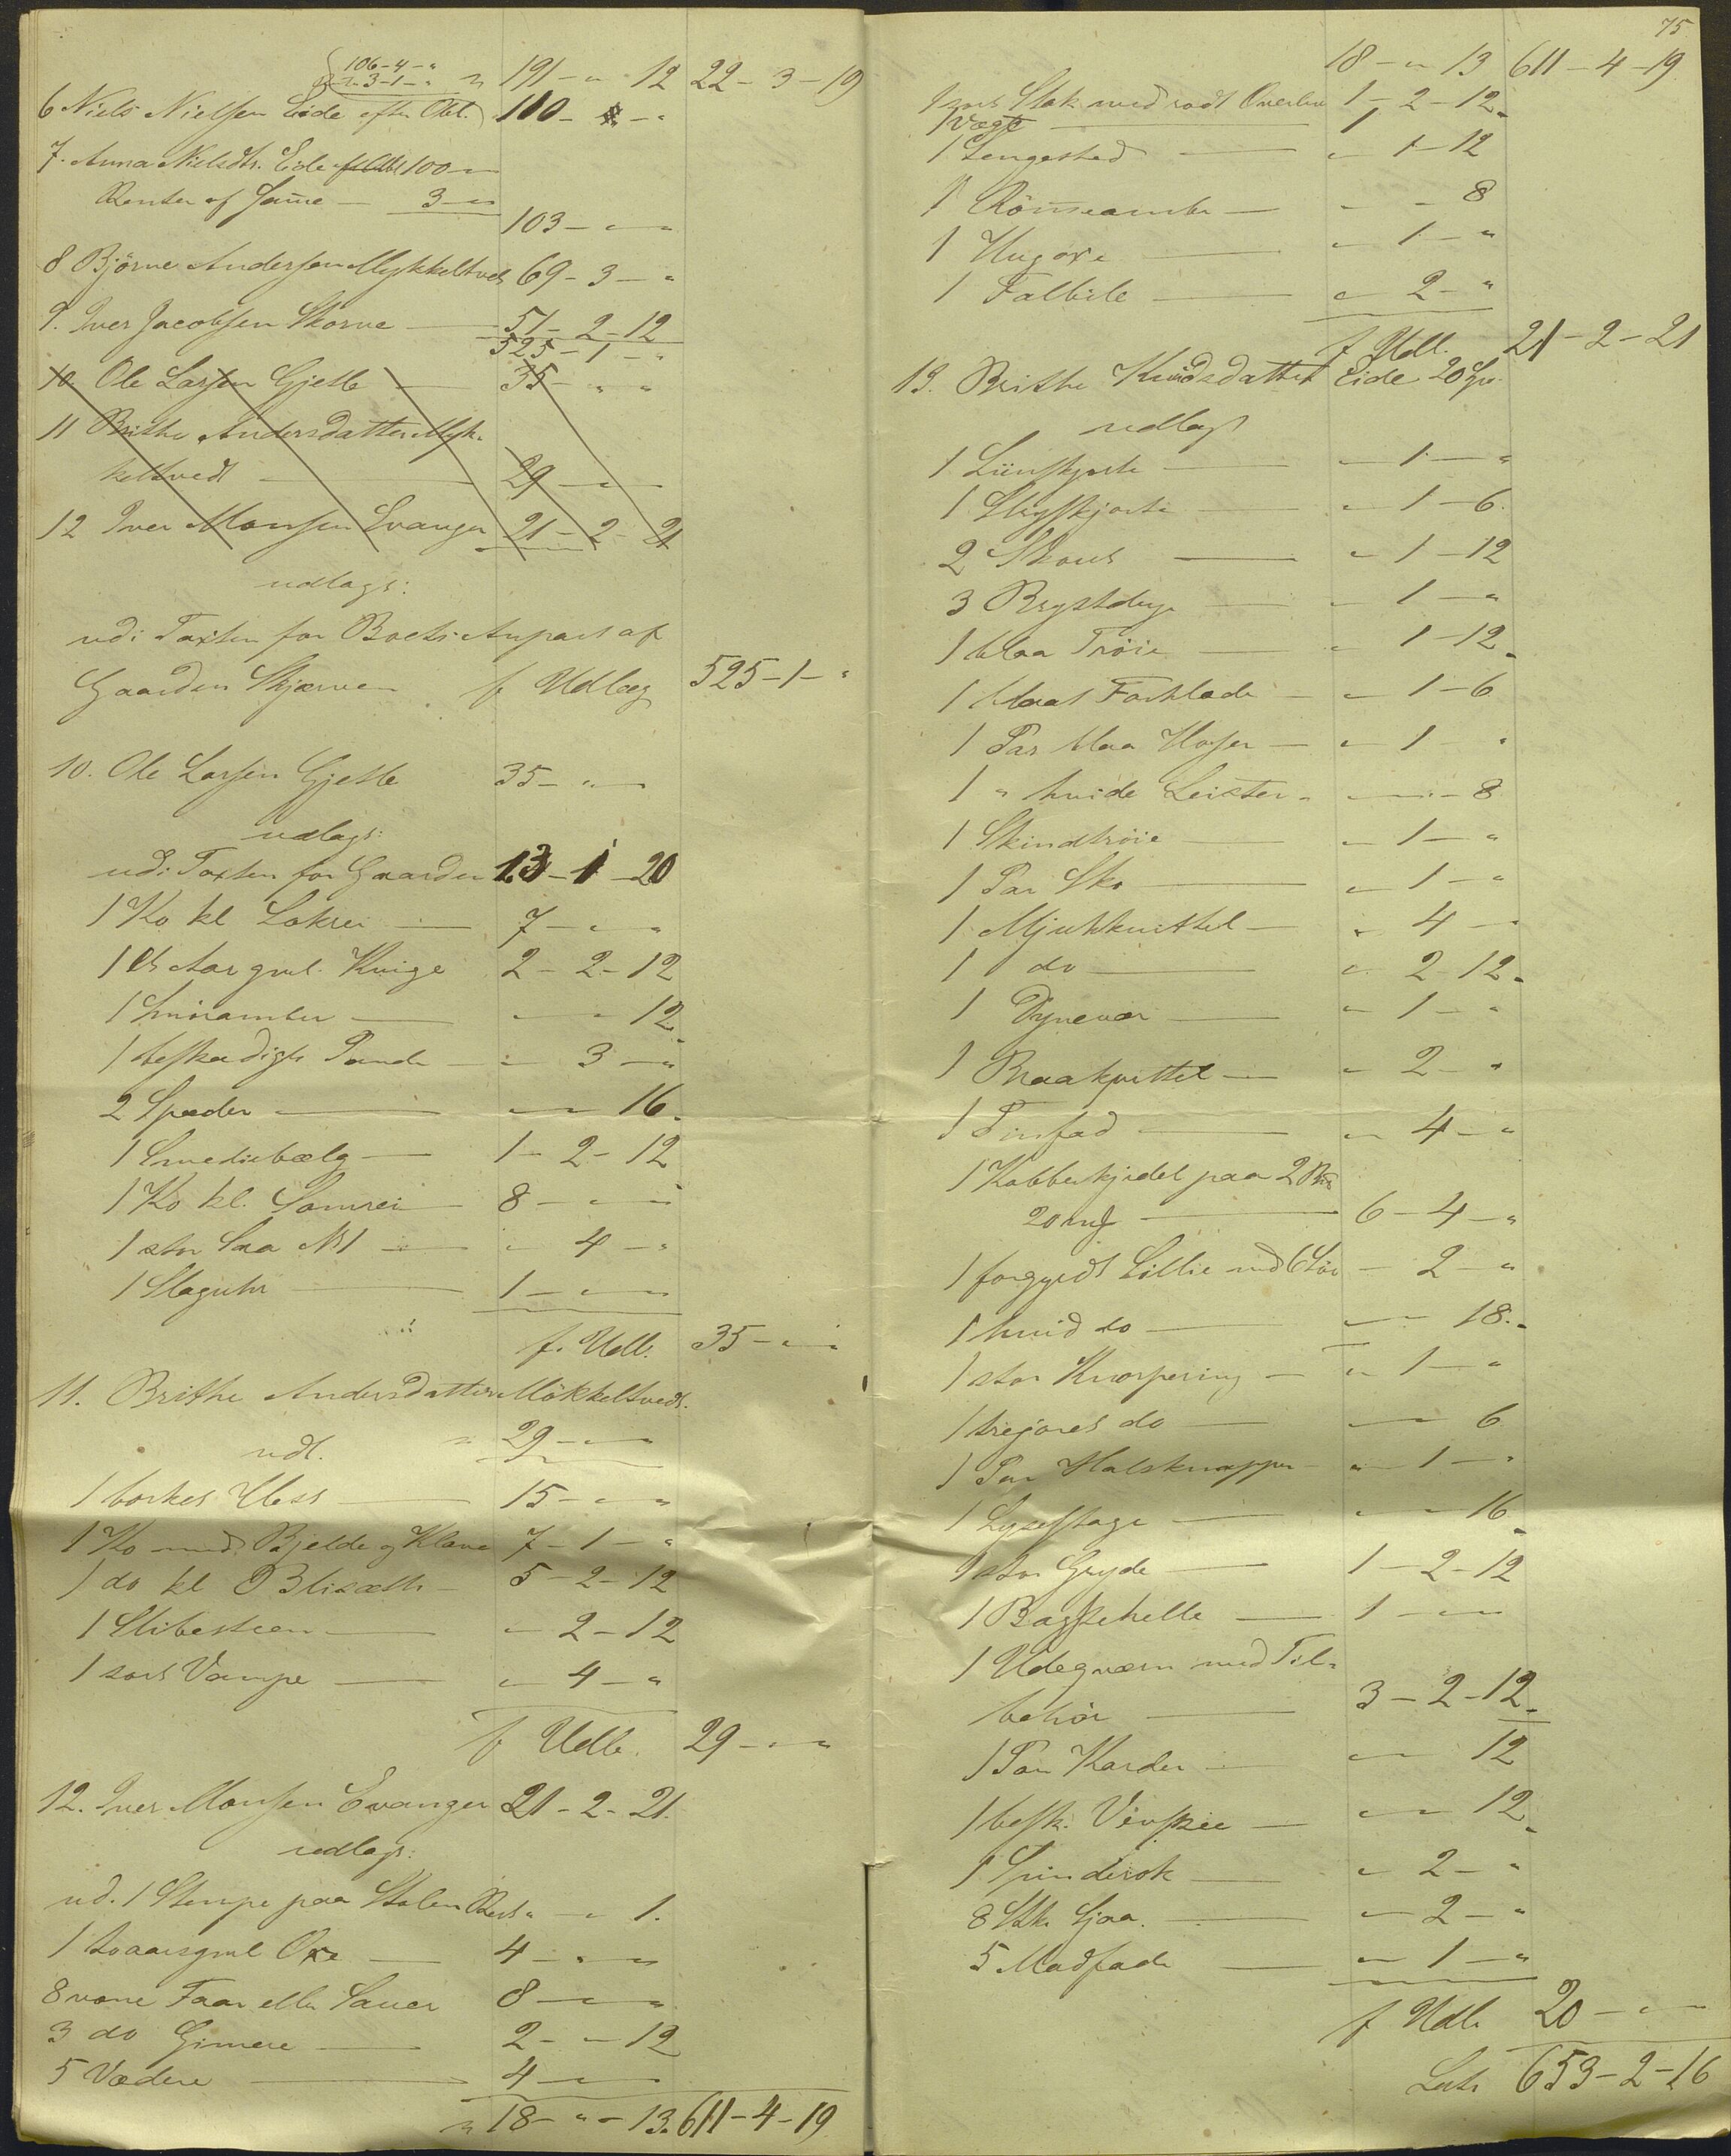 106-4-"
3-1-" 191-"-12 22-3-19
6 Niels Nielsen Eide efter Obl. 100-"-"
7. Anna Nielsdtr. Eide 100-"-"
Renter af Same - 3-"-"
103-"-"
8 Björne Andersen Mykkeltvedt 69-3-"
9. Iver Jacobsen Skorve - 51-2-12
525-1-"
10. Ole Larsen Gjelle - 35-"-"
11 Brithe Andersdatter Myk-
keltvedt - 29-"-"
12 Iver Monsen Evanger 21-2-21
udlagt:
udi Taxten for Boets Anpart af
Gaarden Skjerven f Udlæg 525-1-"
10. Ole Larsen Gjelle 35-"-"
udlagt:
udi Taxten for Gaarden 13-1-20
1 Ko kl Lokrei - 7-"-"
1 et Aar gml. Kvige 2-2-12
1 Smörambar - "-"-12
1 beskadigt Pande - "-3-"
2 Spader - "-"-16
1 Smediebælg - 1-2-12
1 Ko kl. Somrei - 8-"-"
1 stor Saa N1 - "-4-"
1 Slaguhr - 1-"-"
f. Udl. 35-"-"
11. Brithe Andersdatter Mökkeltvedt.
udl. 29-"-"
1 borket Hest - 15-"-"
1 Ko med Bjelde og Klave 7-1-"
1 do kl Blisæth - 5-2-12
1 Slibesteen - "-2-12
1 sort Vampe - "-4-"
f Udl. 29-"-"
12. Iver Monsen Evanger 21-2-21.
udlagt:
ud. 1 Stempe paa Stølen Rest "-"-1.
1 toaarsgml Oxe - 4-"-"
8 vone Faar eller Sauer 8-"-"
3 do Gimere - 2-"-12
5 Vædere - 4-"-"
18-"-13. 611-4-19
75
18-"-13 611-4-19
1 sort Stak med rødt Overliv 1-2-12
1 Vægt - 1
1 Sengested - "-1-12
1 Römeambar - "-"-8
1 Hugoxe - "-1-"
1 Falbile - "-2-"
f Udl. 21-2-21
13. Brithe Knudsdatter Eide 20 Spd.
udlagt
1 Liinskjorte - "-1-"
1 Strieskjorte - "-1-6.
2 Skout - "-1-12
3 Brystduge - "-1-"
1 blaa Tröie - "-1-12
1 blaat Forklæde - "-1-6
1 Par blaa Hoser - "-1-"
1 " hvide Leister - "-"-8
1 Skindtröie - "-1-"
1 Par Sko - "-1-"
1 Mjukkvittel - "-4-"
1 do - "-2-12
1 Dynevar - "-1-"
1 Braakvittel - "-2-"
1 Tinfad - "-4-"
1 Kobberkjedel paa 2 Bis
20 mk - 6-4-"
1 forgyldt Sillie med 6 Löv - 2-"
1 hvid do - "-"-18.
1 stor Knorpering - "-1-"
1 trejoret do - "-"-6
1 Par Halsknapper - "-1-"
1 Lysestage - "-"-16
1 stor Gryde - 1-2-12
1 Bagstehelle - 1-"-"
1 Udeqværn med Til-
behör - 3-2-12
1 Par Karder - "-"-12
1 besk. Vinskee - "-"-12
1 Spinderok - "-2-"
8 Stk. Ljaa. - "-2-"
5 Madfade - "-1-"
f Udl. 20-"-"
Lats 653-2-16